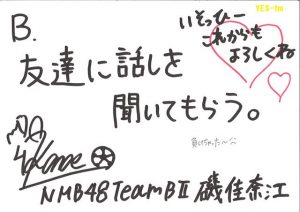 YES-fm
B.
いそっぴー
これからも
よろしくね
友達に話しを
聞いてもらう。
NMB48 TeamBⅡ 磯佳奈江